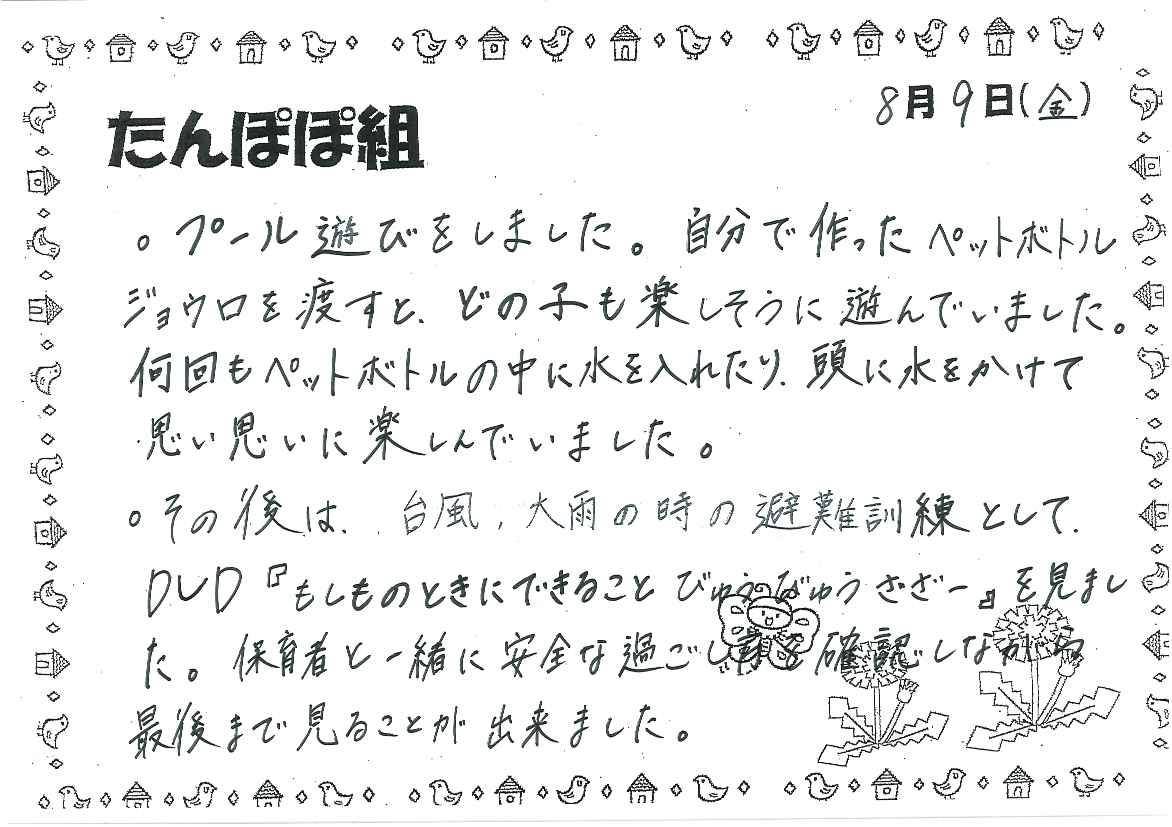 8月9日(金)
たんぽぽ組
○ プール遊びをしました。自分で作ったペットボトル
ジョウロを渡すと、どの子も楽しそうに遊んでいました。
何回もペットボトルの中に水を入れたり、頭に水をかけて
思い思いに楽しんでいました。
○ その後は、台風、大雨の時の避難訓練として、
DVD『もしものときにできること びゅうびゅうざざー』を見まし
た。保育者と一緒に安全な過ごし方を確認しながら
最後まで見ることが出来ました。